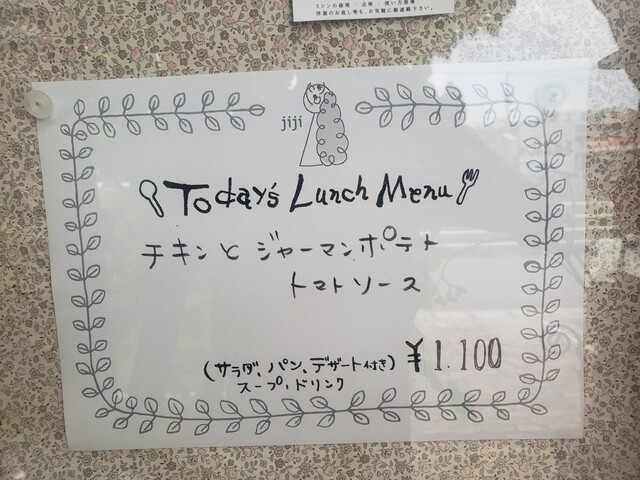 ミシンの修理・点検・使い方指導
洋服のお直し等も、お気軽に御連絡下さい。
jiji
Today's Lunch Menu
チキンと ジャーマンポテト
トマトソース
(サラダ、パン、デザート付き) ¥1.100
スープ、ドリンク